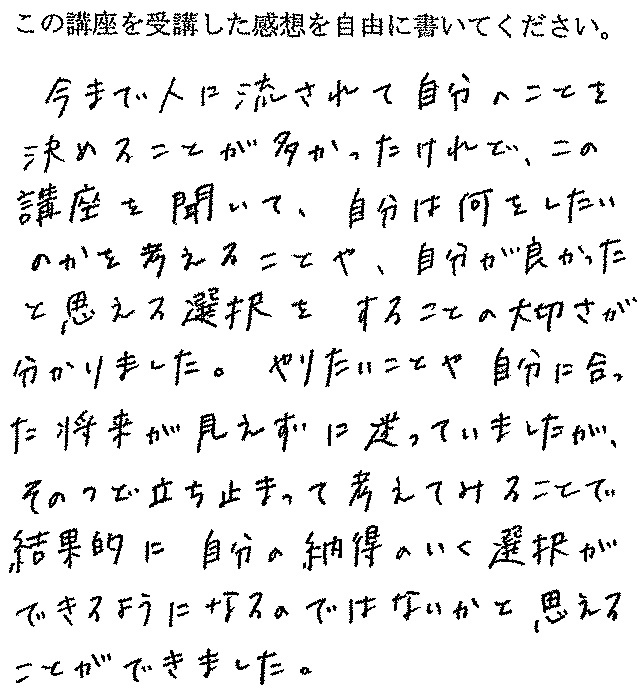 この講座を受講した感想を自由に書いてください。
今まで人に流されて自分のことを
決めることが多かったけれど、この
講座を聞いて、自分は何をしたい
のかを考えることや、自分が良かった
と思える選択をすることの大切さが
分かりました。やりたいことや自分に合っ
た将来が見えずに迷っていましたが、
そのつど立ち止まって考えてみることで
結果的に自分の納得のいく選択が
できるようになるのではないかと思える
ことができました。